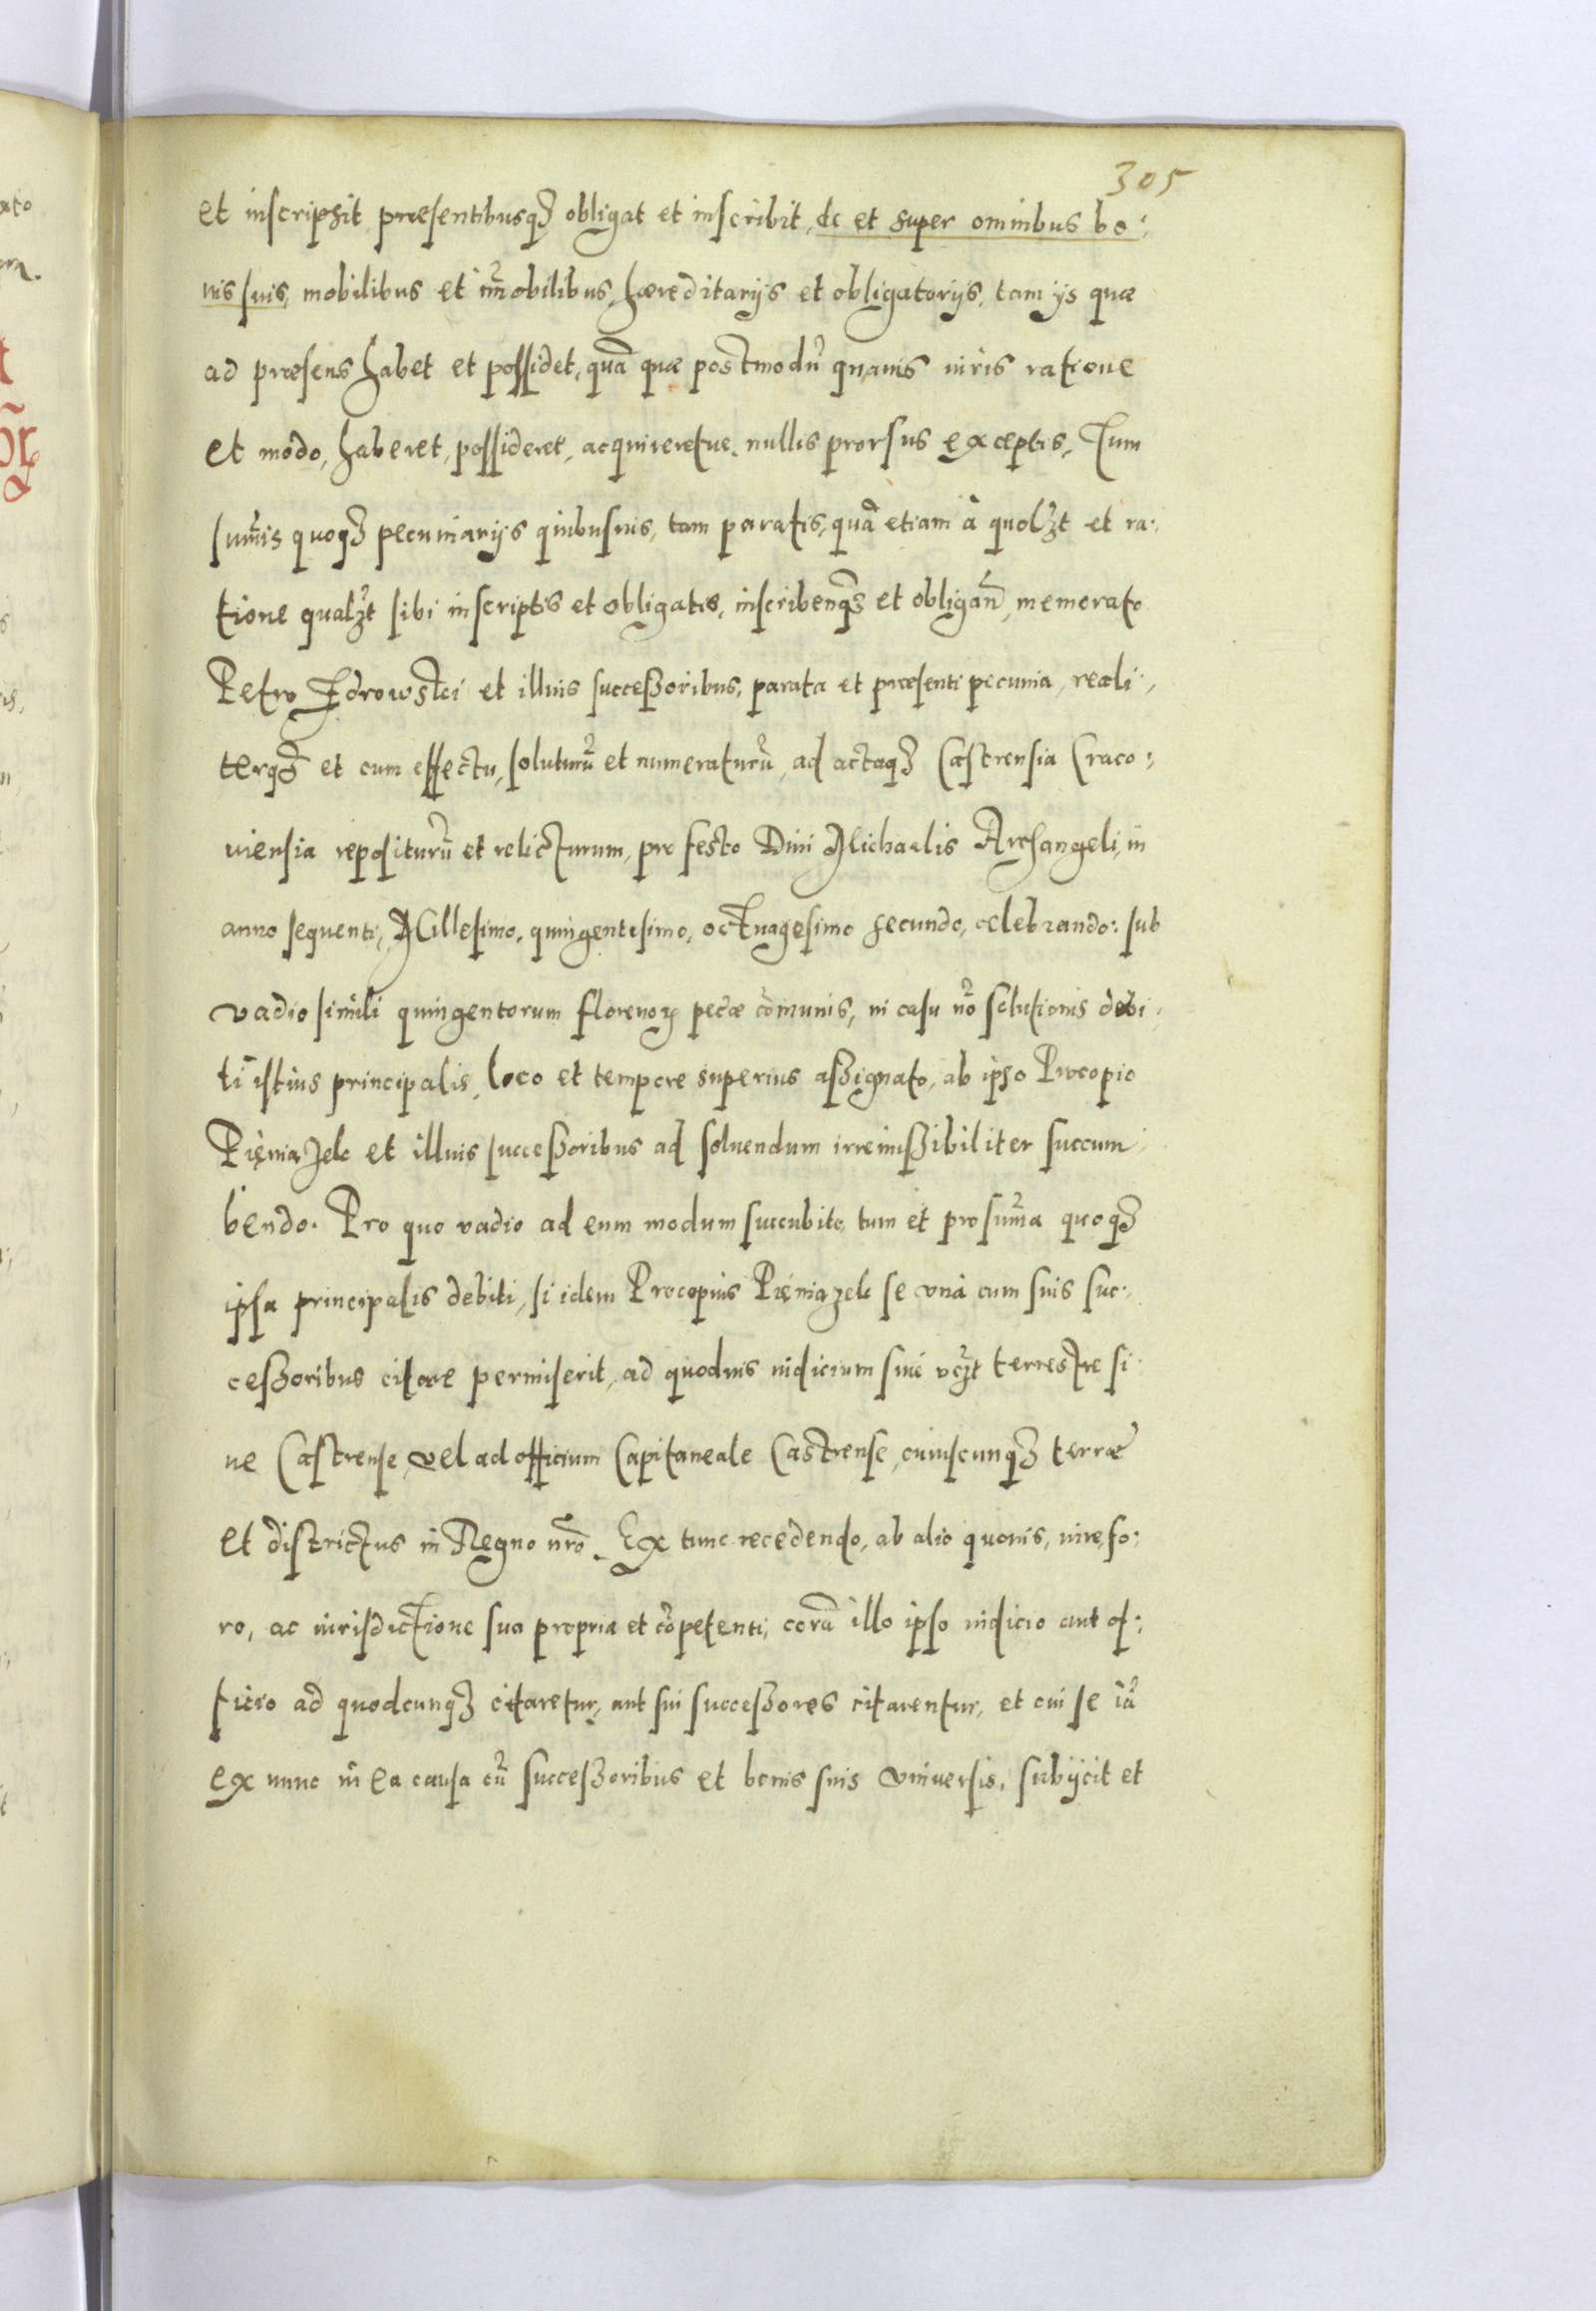 305
et inscripsit, praesentibusq3 obligat et inscribit, de et super omnibus bo:
nis suis, mobilibus et im̃obilibus, haereditarijs et obligatorijs, tam ijs quae
ad praesens habet et possidet, quã quae postmodũ quauis iuris ratione
et modo, haberet, possideret, acquireretue, nullis prorsus exceptis, Tum
sum̃is quoq3 pecuniarijs quibusuis, tam paratis, quã etiam à quol3t et ra:
tione qual3t sibi inscriptis et obligatis, inscribenq3 et obligañ, memorato
Petro Zdrowski et illius successoribus, parata et praesenti pecunia, reali:
terq3 et cum effectu, soluturũ et numeraturũ, ad actaq3 Castrensia Craco:
uiensia repositurũ et relicturum, pro festo Diui Michaelis Archangeli, in
anno sequenti, Millesimo, quingentesimo, octuagesimo secundo, celebrando: sub
vadio simili quingentorum florenoꝝ pecũae cõmunis, in casu nõ solutionis debi:
ti istius principalis, loco et tempore superius assignato, ab ipso Procopio
Pięniązek et illius successoribus ad soluendum irremissibiliter succum
bendo. Pro quo vadio ad eum modum succubito, tum et pro sum̃a quoq3
ipsa principalis debiti, si idem Procopius Pięniązek se vnà cum suis suc:
cessoribus citare permiserit, ad quoduis iudicium siue vc3t terrestre si:
ue Castrense, vel ad officium Capitaneale Castrense, cuiuscunq3 terrae
et districtus in Regno nr̃o. Ex tunc recedendo, ab alio quouis, iure, fo:
ro, ac iurisdictione sua propria et cõpetenti, corã illo ipso iudicio aut of:
ficio ad quodcunq3 citaretur, aut sui successores citarentur, et cui se iã
ex nunc in ea causa cũ successoribus et bonis suis vniuersis, subijcit et